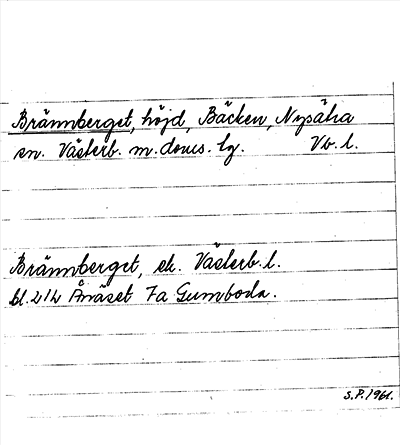 Brännberget, höjd, Bäcken, Nysätra
sn. Västerb. m. doms. lg. Vb. l.
Brännberget, ek. Västerb. l.
bl. 212 Ånäset 7a Gumboda.
S.P. 1961.